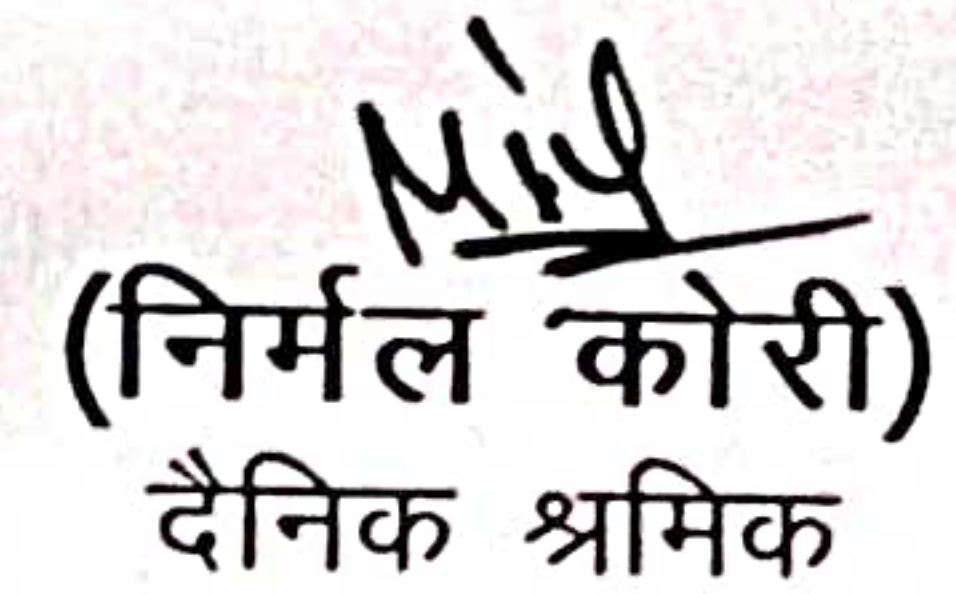 (निर्मल कोरी)
दैनिक श्रमिक